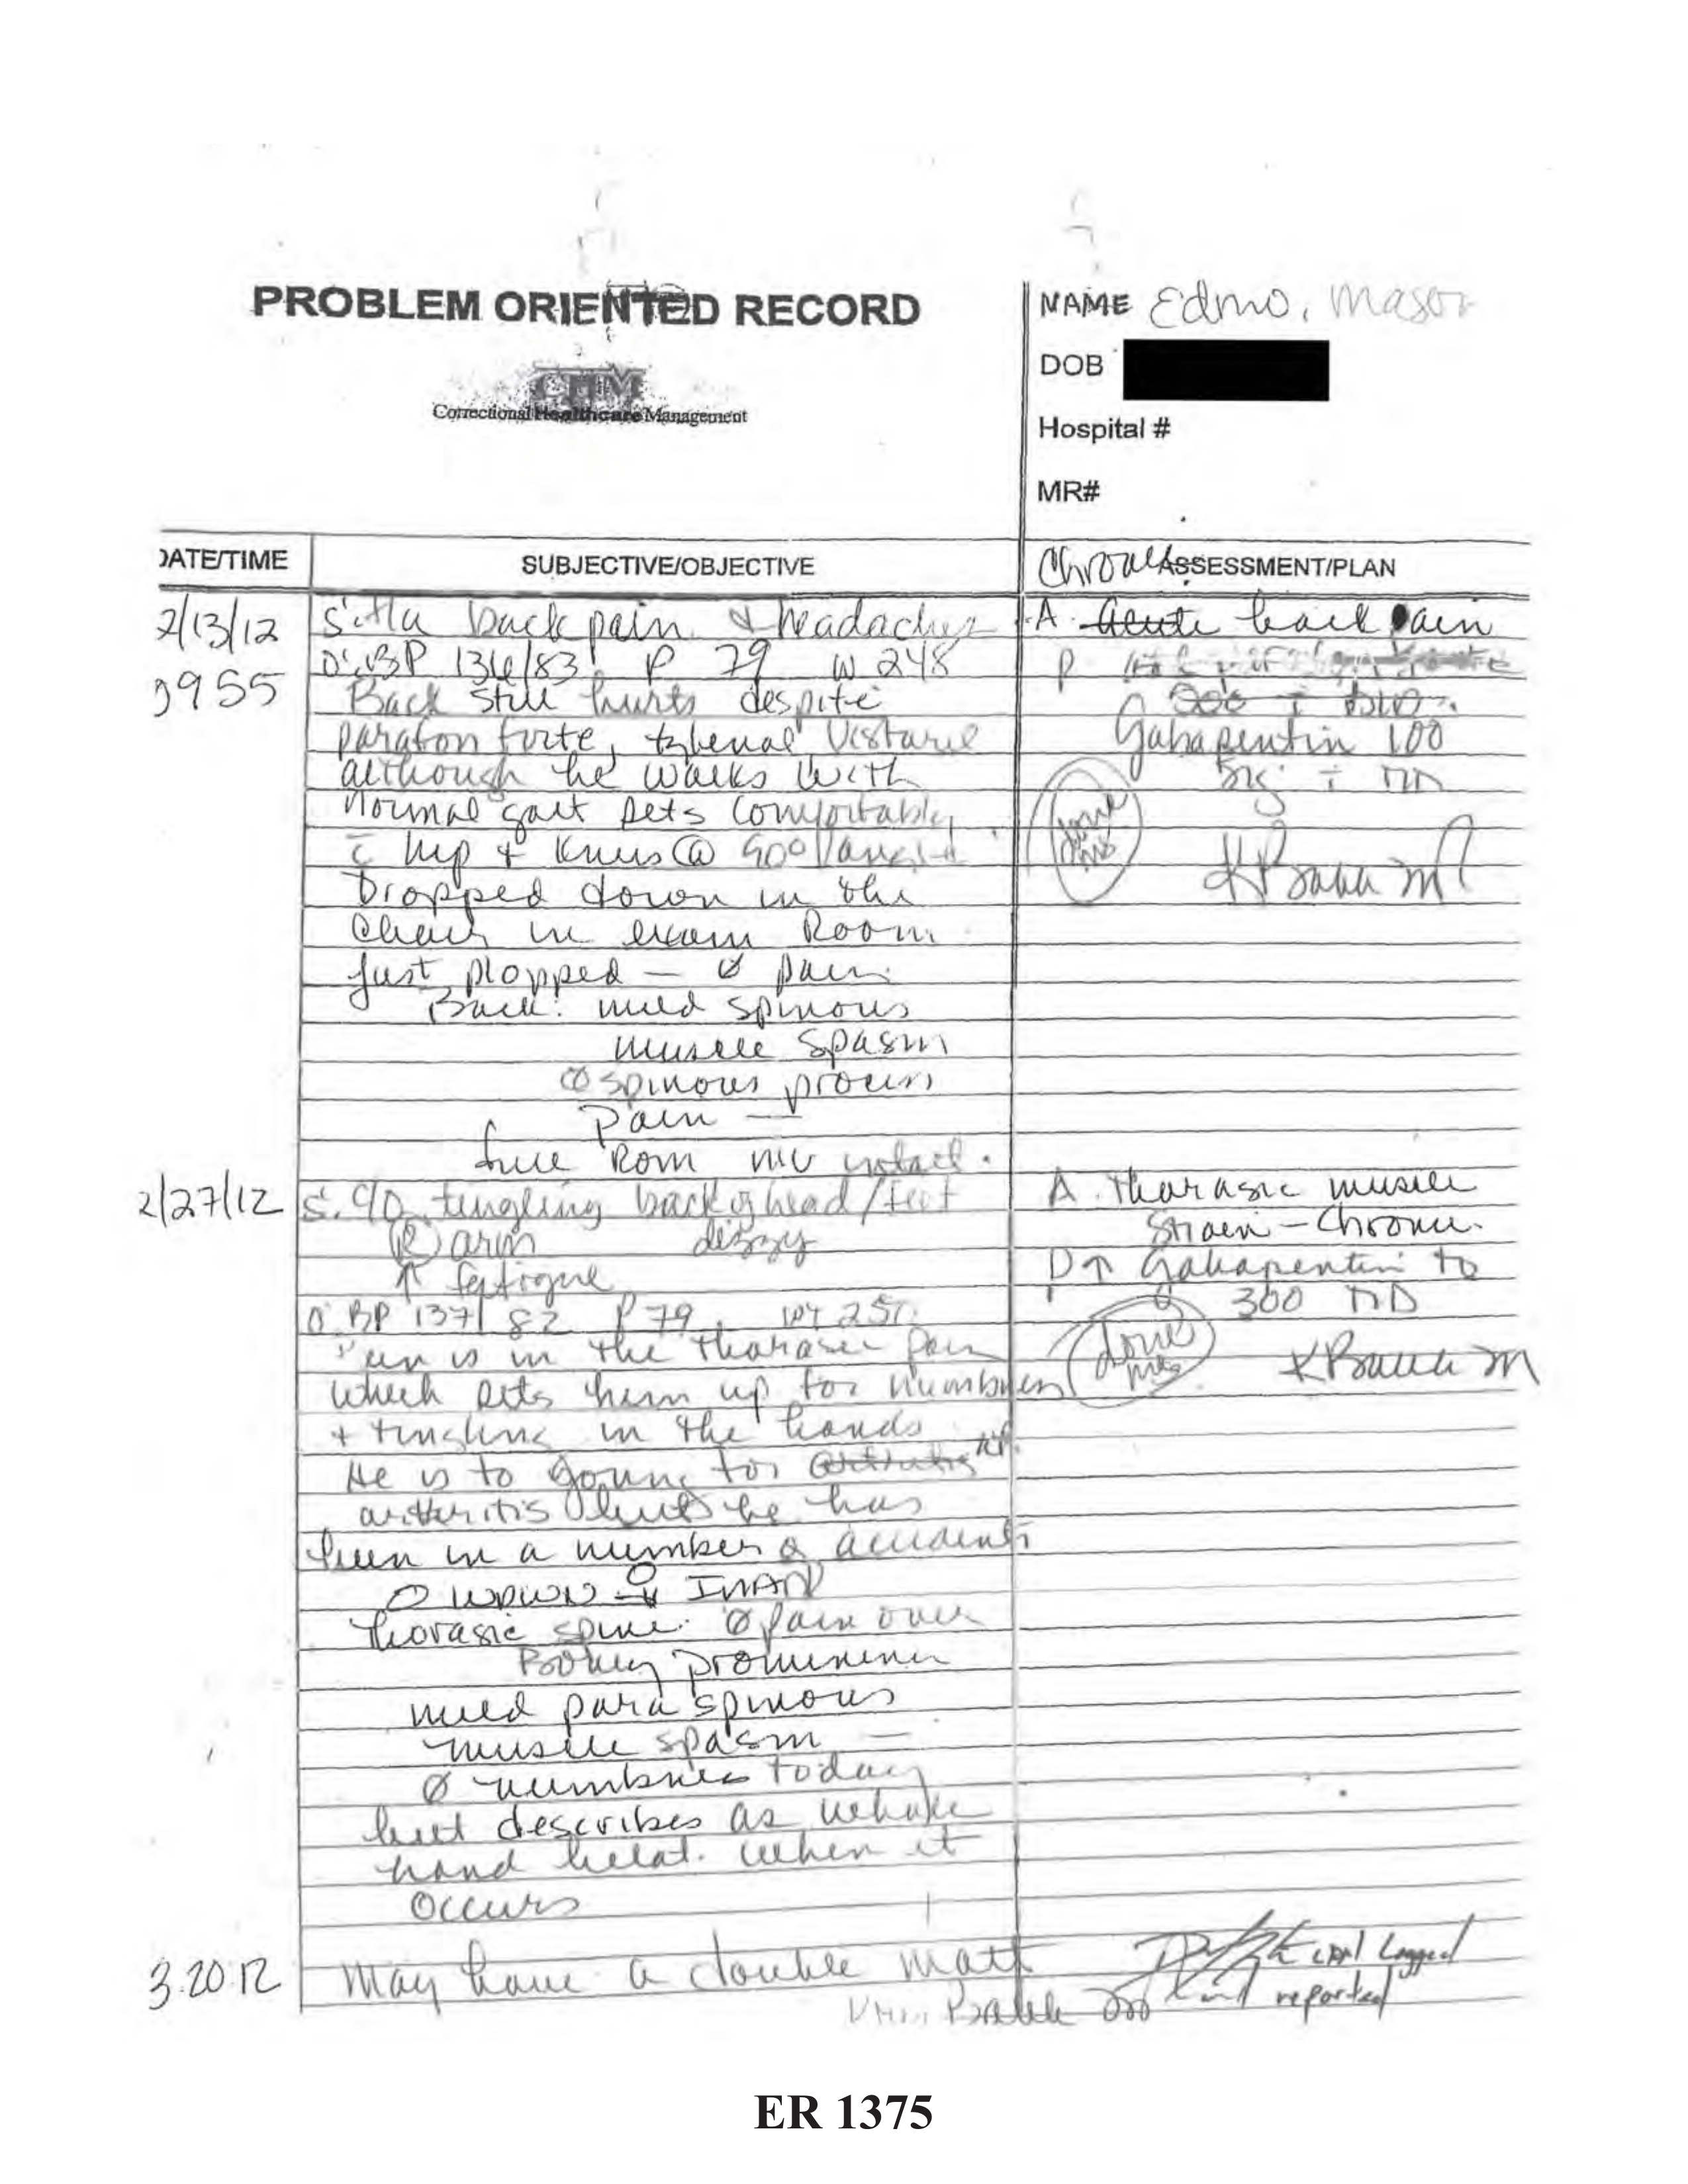 PROBLEM ORIENTED RECORD
Correctional Healthcare Management
NAME Edmo, Mason
DOB
Hospital #
MR#
DATE/TIME
SUBJECTIVE/OBJECTIVE
ASSESSMENT/PLAN
2/13/12
0955
back pain & headaches
O: BP 134/83 P 79 W 248
Back still hurts despite
parafon forte, Vistaril
although he walks with
normal gait sets comfortable
c̄ hip + knees @ 90°
Dropped down in the
chair in exam Room
just plopped — Ø pain
Back: mild spinous
muscle spasm
Ø spinous process
Pain —
full ROM intact.
Chronic
A. Acute back pain
P
Gabapentin 100
done
K Barrett M
2/27/12
S. c/o tingling back of head/feet
(R) arm dizzy
↑ fatigue
O BP 137/82 P 79 wt 251
is in the Thorasic Pain
which sets him up for numbness
+ tingling in the hands
He is to young for
arthritis but he has
been in a number of accidents
O WDWN ♂ INAD
Thorasic spine: Ø pain over
Boney prominence
mild para spinous
muscle spasm —
Ø numbness today
but describes as whole
hand when it
occurs
A. Thorasic muscle
Strain – Chronic.
P ↑ Gabapentin to
300 TID
done
3.20.12
May have a double matt
Logged
and reported
ER 1375